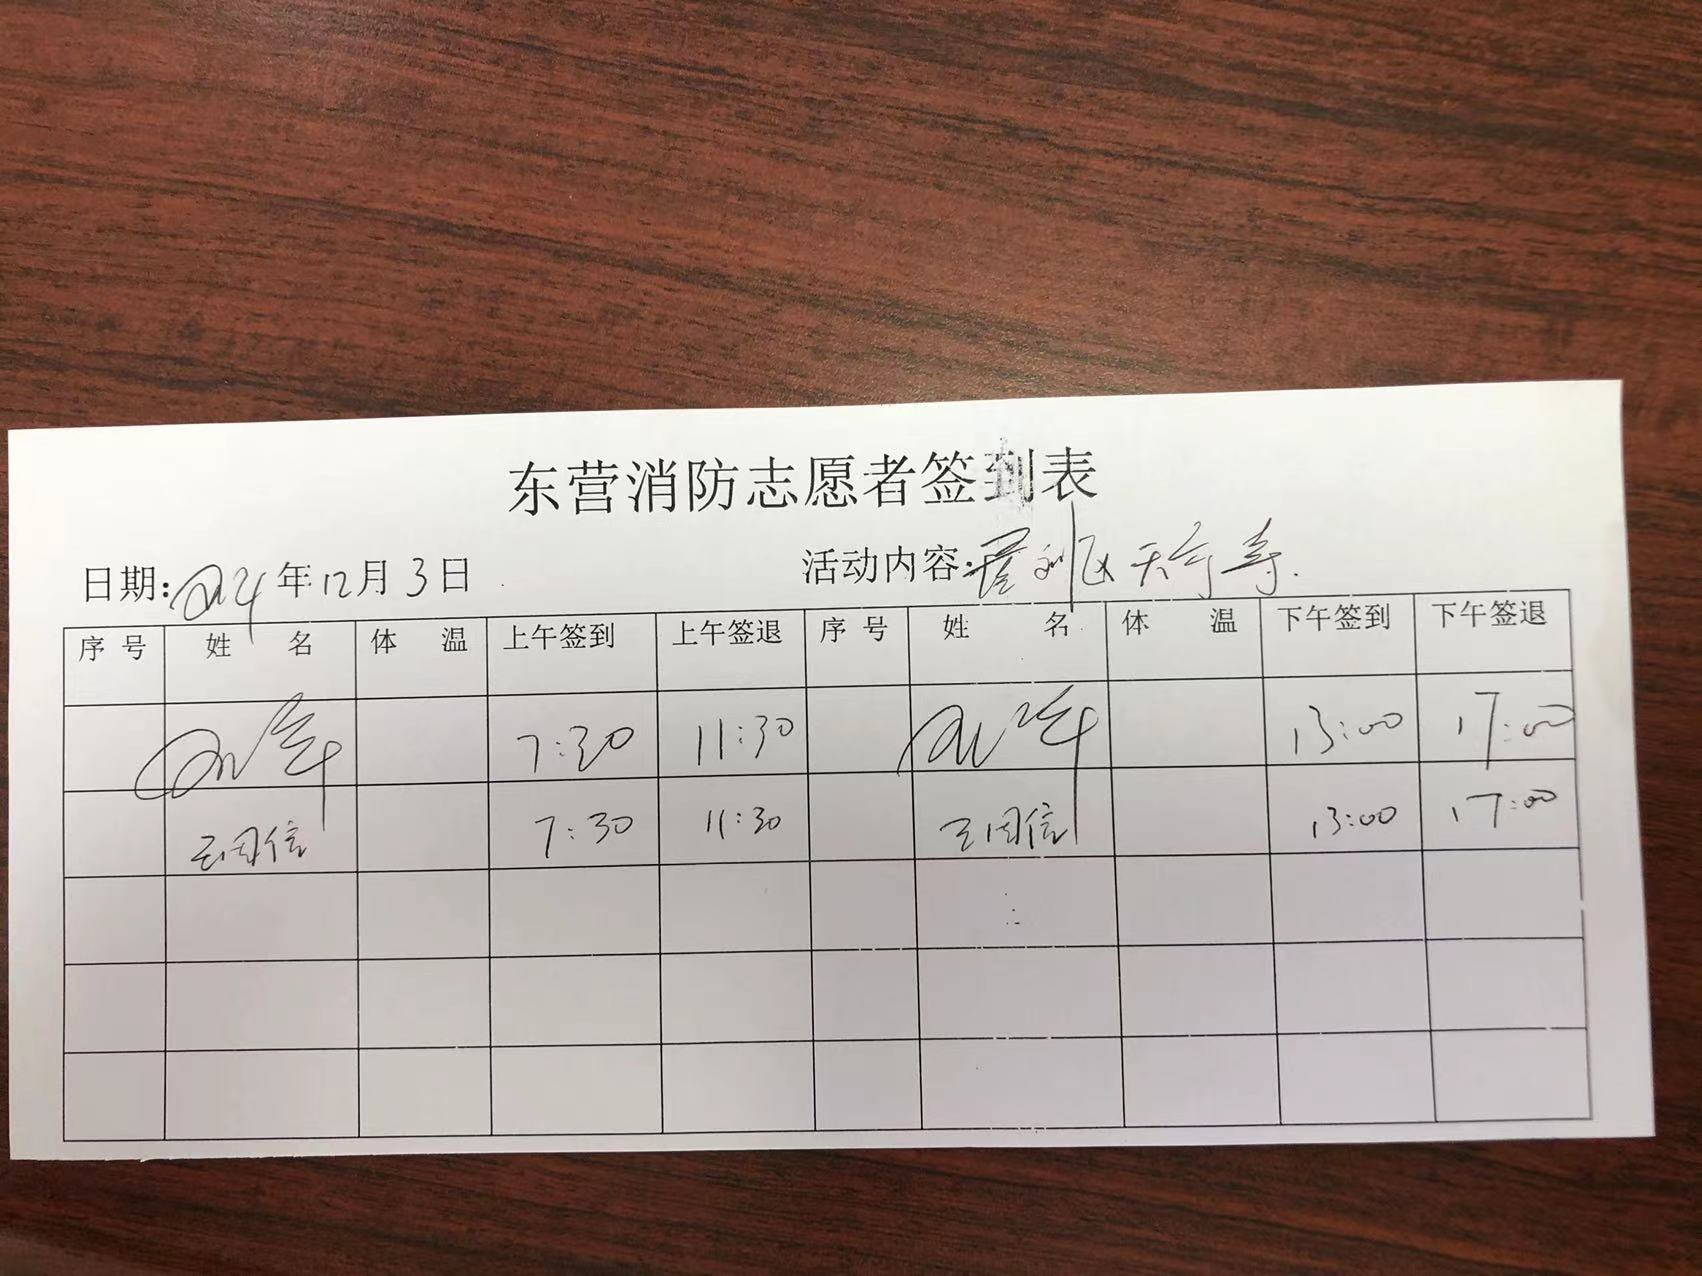 东营消防志愿者签到表
日期: 2024年12月3日 活动内容: 垦利区天宁寺
序号 姓名 体温 上午签到 上午签退 序号 姓名 体温 下午签到 下午签退
7:30 11:30 13:00 17:00
王国信 7:30 11:30 王国信 13:00 17:00